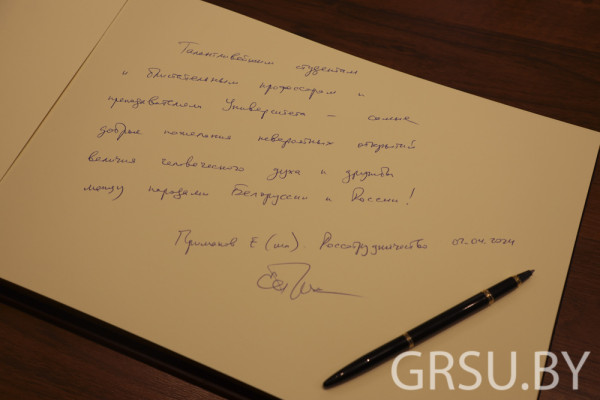 Талантливейшим студентам
и блистательным профессорам и
преподавателям Университета – самые
добрые пожелания невероятных открытий
величия человеческого духа и дружбы
между народами Белоруссии и России!
Примаков Е (мл). Россотрудничество 02.04.2024
GRSU.BY